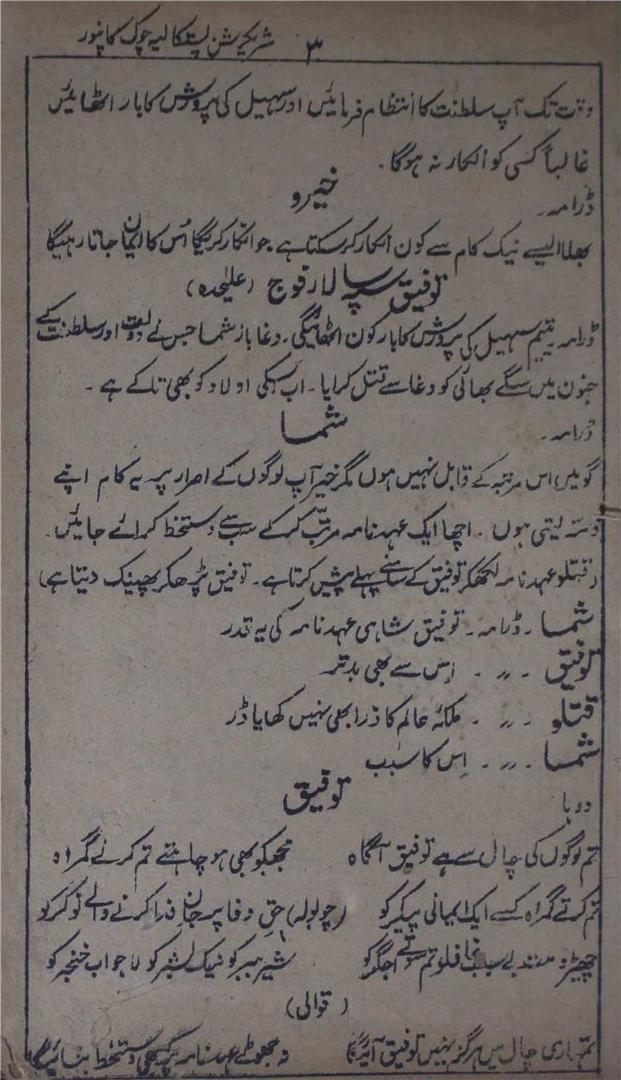 ۳ شریکرشن پستکالیہ چوک کانپور
وقت تک آپ سلطنت کا انتظام فرمائیں اور سہیل کی پرورش کا بار اٹھائیں
غالباً کسی کو انکار نہ ہوگا۔
خیرو
ڈرامہ۔
بھلا ایسے نیک کام سے کون انکار کر سکتا ہے جو انکار کریگا اُس کا ایمان جاتا رہیگا
توفیق سپہ سالار فوج (علیٰحدہ)
ڈرامہ یتیم سہیل کی پرورش کا بار کون اٹھائیگی۔ دغا باز شما جس نے دولت اور سلطنت کے
جنون میں سگے بھائی کو دغا سے قتل کرایا۔ اب اسکی اولاد کو بھی تاکے ہے۔
شما
ڈرامہ۔
گو میں اس مرتبہ کے قابل نہیں ہوں مگر خیر آپ لوگوں کے اصرار پر یہ کام اپنے
ذمہ لیتی ہوں۔ اچھا ایک عہد نامہ مرتب کر کے سب سے دستخط کرائے جائیں۔
(قتلو عہد نامہ لکھکر توفیق کے سامنے پہلے پیش کرتا ہے۔ توفیق پڑھکر پھینک دیتا ہے)
شما ۔ ڈرامہ۔ توفیق شاہی عہد نامہ کی یہ قدر
توفیق ۔ ״ ۔ اِس سے بھی بدتر
قتلو ۔ ״ ۔ ملکۂ عالم کا ذرا بھی نہیں کھایا ڈر
شما ۔ ״ ۔ اِس کا سبب
توفیق
دوہا
تم لوگوں کی چال سے ہے توفیق آگاہ مجھکو بھی ہو چاہتے تم کرنے گمراہ
تم کرتے گمراہ کسے ایک ایمانی پیکر کو (چولولہ) حقِ وفا پر جان فدا کرنے والے نوکر کو
چھیڑو مت بے سبب غافلو تم سوتے اجگر کو شیر ببر کو نیک بشر کو لا جواب خنجر کو
(قوالی)
تمہاری چال میں ہرگز نہیں توفیق آئیگا نہ جھوٹے عہد نامہ پر کبھی دستخط بنائیگا